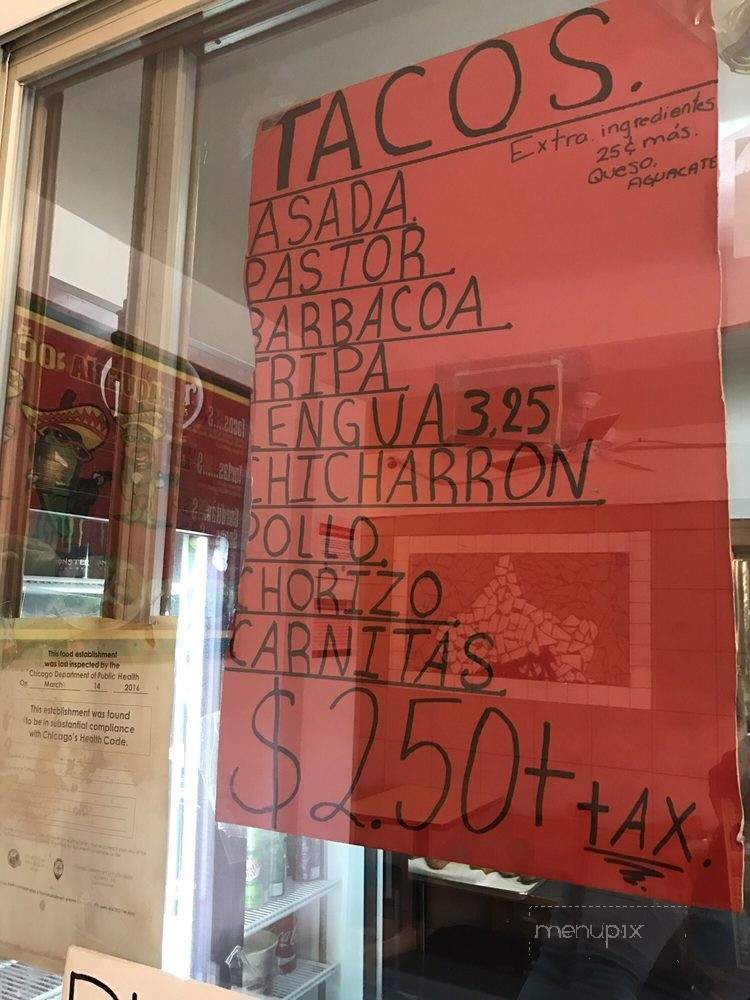 TACOS.
Extra ingredientes
25¢ más.
Queso.
AGUACATE
ASADA.
PASTOR.
BARBACOA.
TRIPA.
LENGUA 3.25
CHICHARRON
POLLO.
CHORIZO.
CARNITAS.
$2.50+
+AX.
This food establishment
was last inspected by the
Chicago Department of Public Health
On March 14 2016
This establishment was found
to be in substantial compliance
with Chicago's Health Code.
menupix